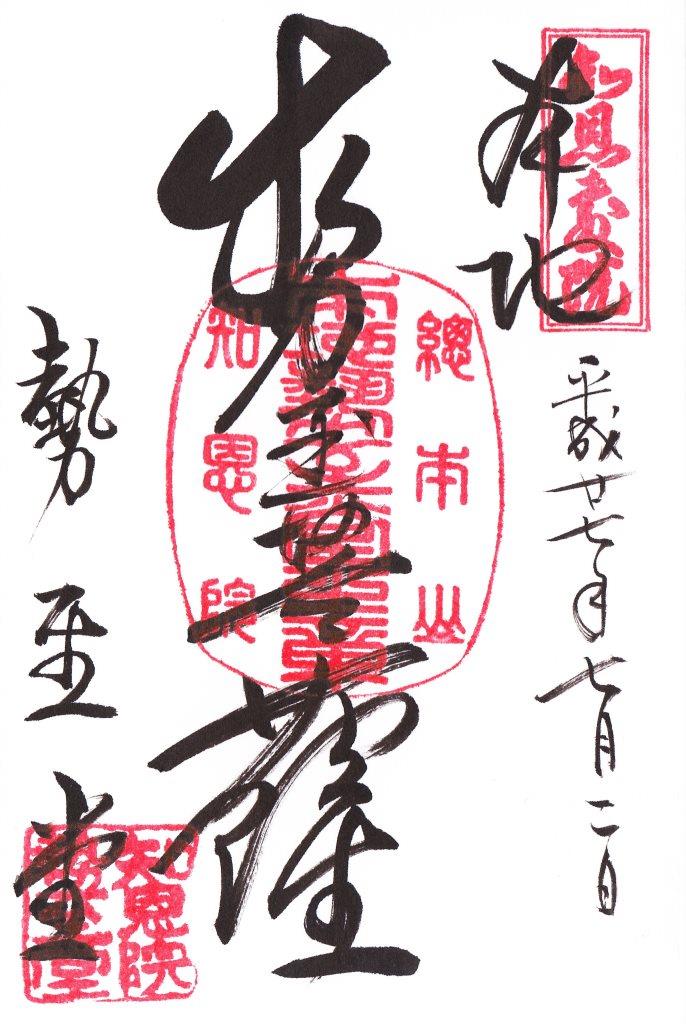 知恩教院
本地
平成廿七年七月二日
勢至菩薩
總本山
知恩院
勢至堂
知恩院
勢至堂